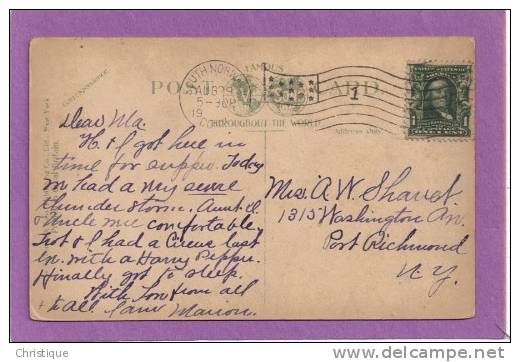 FAMOUS
POST CARD.
THROUGHOUT THE WORLD
SOUTH NORW
AUG
5-30P
19
1
ONE CENT
CORRESPONDENCE
Address Only
New York
Dear Ma.
H & I got here in
time for supper. Today
we had a very severe
thunder storm. Aunt
& Uncle comfortable,
& I had a Circus last
with a Harry
Finally got to sleep.
With love from all
to all. Marion.
Mrs. A W
1315 Washington Av.
Port Richmond
N.Y.
Christique
http://www.delcampe.net